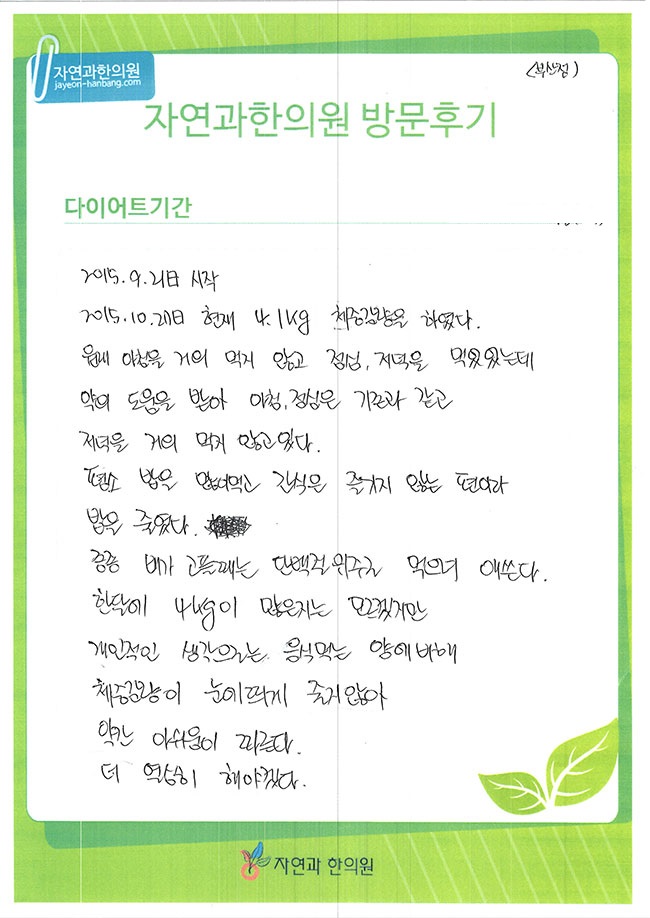 자연과한의원
jayeon-hanbang.com
(부산점)
자연과한의원 방문후기
다이어트기간
2015. 9. 21日 시작
2015. 10. 20日 현재 4.1kg 체중감량을 하였다.
원래 아침을 거의 먹지 않고 점심, 저녁을 먹었었는데
약의 도움을 받아 아침, 점심은 기존과 같고
저녁을 거의 먹지 않고있다.
평소 밥을 많이먹고 간식은 즐기지 않는 편이라
밥을 줄였다.
종종 배가 고플때는 단백질위주로 먹으며 애쓴다.
한달에 4kg이 많은지는 모르겠지만
개인적인 생각으로는 음식먹는 양에비해
체중감량이 눈에띄게 줄지않아
약간 아쉬움이 따른다.
더 열심히 해야겠다.
자연과 한의원